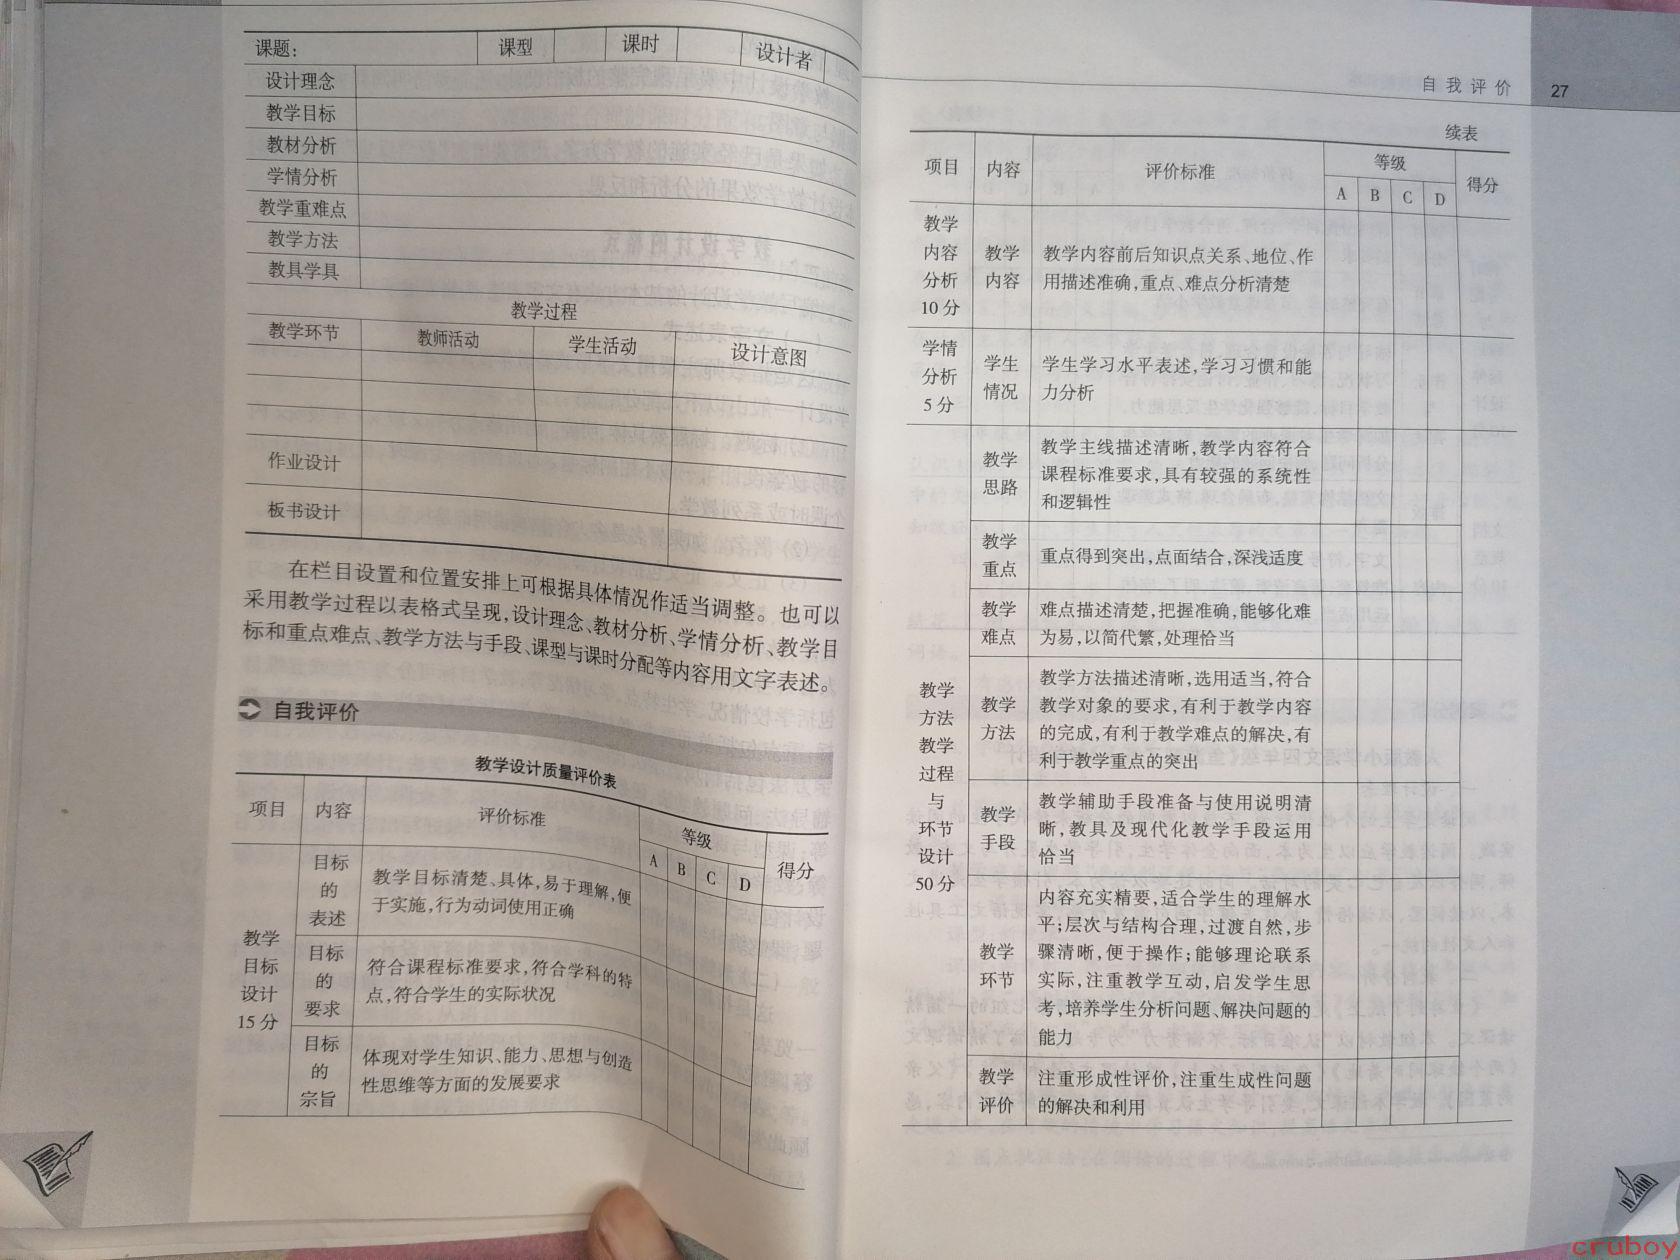 课题: 课型 课时 设计者
设计理念
教学目标
教材分析
学情分析
教学重难点
教学方法
教具学具
教学过程
教学环节 教师活动 学生活动 设计意图
作业设计
板书设计
在栏目设置和位置安排上可根据具体情况作适当调整。也可以
采用教学过程以表格式呈现,设计理念、教材分析、学情分析、教学目
标和重点难点、教学方法与手段、课型与课时分配等内容用文字表述。
自我评价
教学设计质量评价表
项目 内容 评价标准 等级 得分
A B C D
教学
目标
设计
15分
目标
的
表述
教学目标清楚、具体,易于理解,便
于实施,行为动词使用正确
目标
的
要求
符合课程标准要求,符合学科的特
点,符合学生的实际状况
目标
的
宗旨
体现对学生知识、能力、思想与创造
性思维等方面的发展要求
自我评价 27
续表
项目 内容 评价标准 等级 得分
A B C D
教学
内容
分析
10分
教学
内容
教学内容前后知识点关系、地位、作
用描述准确,重点、难点分析清楚
学情
分析
5分
学生
情况
学生学习水平表述,学习习惯和能
力分析
教学
方法
教学
过程
与
环节
设计
50分
教学
思路
教学主线描述清晰,教学内容符合
课程标准要求,具有较强的系统性
和逻辑性
教学
重点
重点得到突出,点面结合,深浅适度
教学
难点
难点描述清楚,把握准确,能够化难
为易,以简代繁,处理恰当
教学
方法
教学方法描述清晰,选用适当,符合
教学对象的要求,有利于教学内容
的完成,有利于教学难点的解决,有
利于教学重点的突出
教学
手段
教学辅助手段准备与使用说明清
晰,教具及现代化教学手段运用
恰当
教学
环节
内容充实精要,适合学生的理解水
平;层次与结构合理,过渡自然,步
骤清晰,便于操作;能够理论联系
实际,注重教学互动,启发学生思
考,培养学生分析问题、解决问题的
能力
教学
评价
注重形成性评价,注重生成性问题
的解决和利用
cruboy